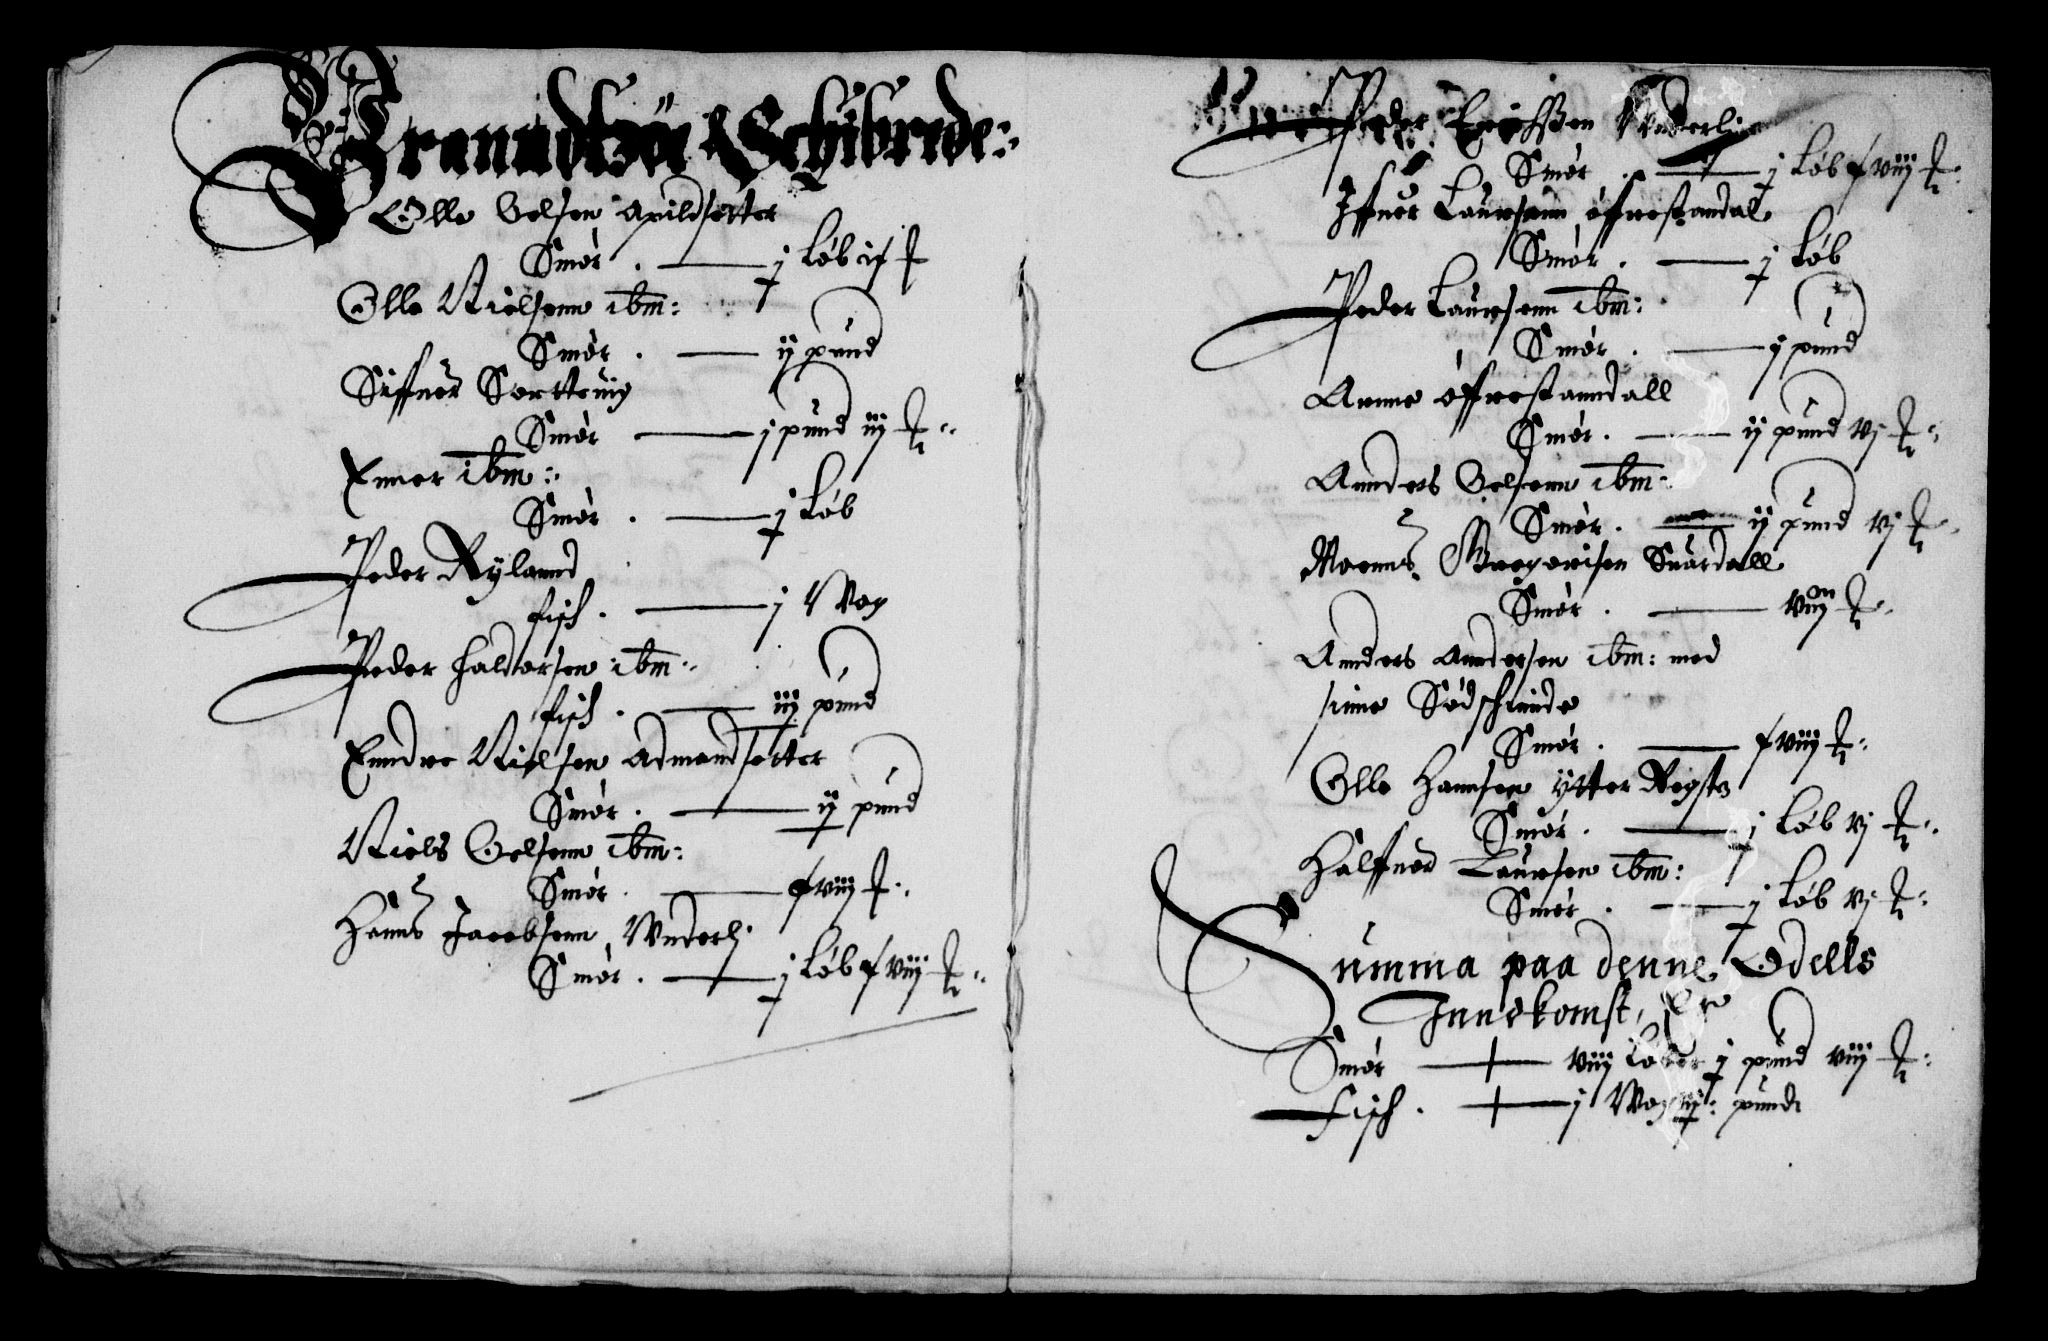 Branndtzöe Schibrede:
Olle Oelsen Apildsetter
Smør . — j Løb if ℔
Olle Nielsenn ibm:
Smør . — ij pund
Siffuer Sortteuig
Smør — j pund iij ℔:
Enner ibm:
Smør . — j Løb
Peder Rylannd
fisch . — j Wog
Peder Haldorsen ibm:
fisch . — iij pund
Enndre Nielsen Admandsetter
Smør . — ij pund
Niels Oelsenn ibm:
Smør . — f viij ℔:
Hanns Jacobsenn Wnderlj
Smør . — j Løb f viij ℔:
Peder Erichssen Wnderlj
Smør . — j Løb f viij ℔:
Iffuer Laursenn øffrestandal
Smør . — j Løb
Peder Laursenn ibm:
Smør . — j pund
Anne øffrestanndall
Smør . — ij pund vj ℔:
Annders Oelsenn ibm:
Smør . — ij pund vj ℔:
Mogenns Suardall
Smør . — viij ℔:
Annders Anndersen ibm: med
sinne Sødschinde
Smør . — f viij ℔:
Olle Hannsen ytter Regst
Smør . — j Løb vj ℔:
Halffuor Laursen ibm:
Smør . — j Løb vj ℔:
Summa paa denne Odells
Innekomst, Er
Smør — viij Løber j pund viij ℔:
Fisch . — j Wog iij: pund